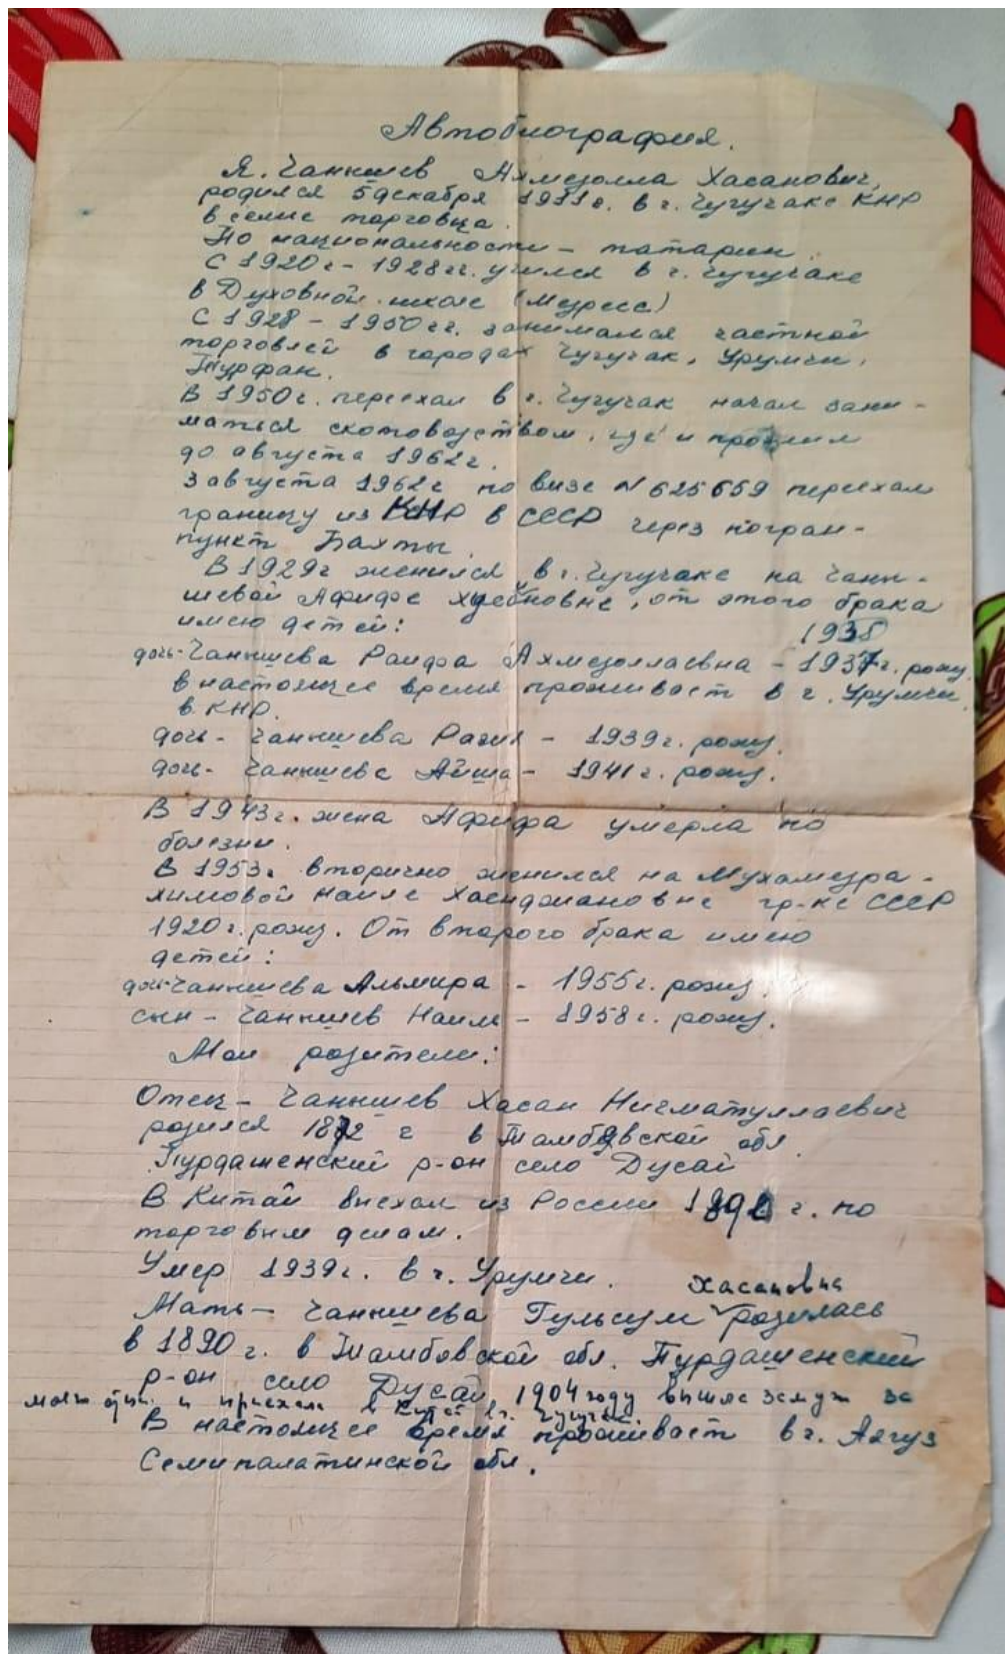 Автобиография.
Я. Чанышев Ахмедолла Хасанович,
родился 5 декабря 1911г. в г. Чугучаке КНР
в семье торговца.
По национальности – татарин.
С 1920г – 1928гг. учился в г. Чугучаке
в Духовной школе (Медресе)
С 1928 – 1950гг. занимался частной
торговлей в городах Чугучак, Урумчи,
Турфан.
В 1950г. переехал в г. Чугучак начал зани-
маться скотоводством, где и прожил
до августа 1962г.
3 августа 1962г по визе N 625659 переехал
границу из КНР в СССР через погран-
пункт Бахты.
В 1929г женился в г. Чугучаке на Чаны-
шевой Афифе, от этого брака
имею детей:
1938
дочь-Чанышева Раифа Ахмедоллаевна – 1937г. рожд.
в настоящее время проживает в г. Урумчи
в КНР.
дочь - Чанышева Рагия – 1939г. рожд.
дочь - Чанышева Айша – 1941г. рожд.
В 1943г. жена Афифа умерла по
болезни.
В 1953г. вторично женился на Мухамедра-
химовой Наиле Хасиджановне гр-ке СССР
1920г. рожд. От второго брака имею
детей:
дочь-Чанышева Альмира – 1955г. рожд.
сын – Чанышев Наиль – 1958г. рожд.
Мои родители:
Отец – Чанышев Хасан Нигматуллаевич
родился 1872 г в Тамбовской обл.
Пурдашенский р-он село Дусай
В Китай выехал из России г. по
торговым делам.
Умер 1939г. в г. Урумчи.
Хасановна
Мать – Чанышева Гульсум родилась
в 1890г. в Тамбовской обл. Пурдашенский
р-он село Дусай, 1904 году вышла замуж за
моего отца и приехала в Китай в г. Чугучак.
В настоящее время проживает в г. Аягуз
Семипалатинской обл.